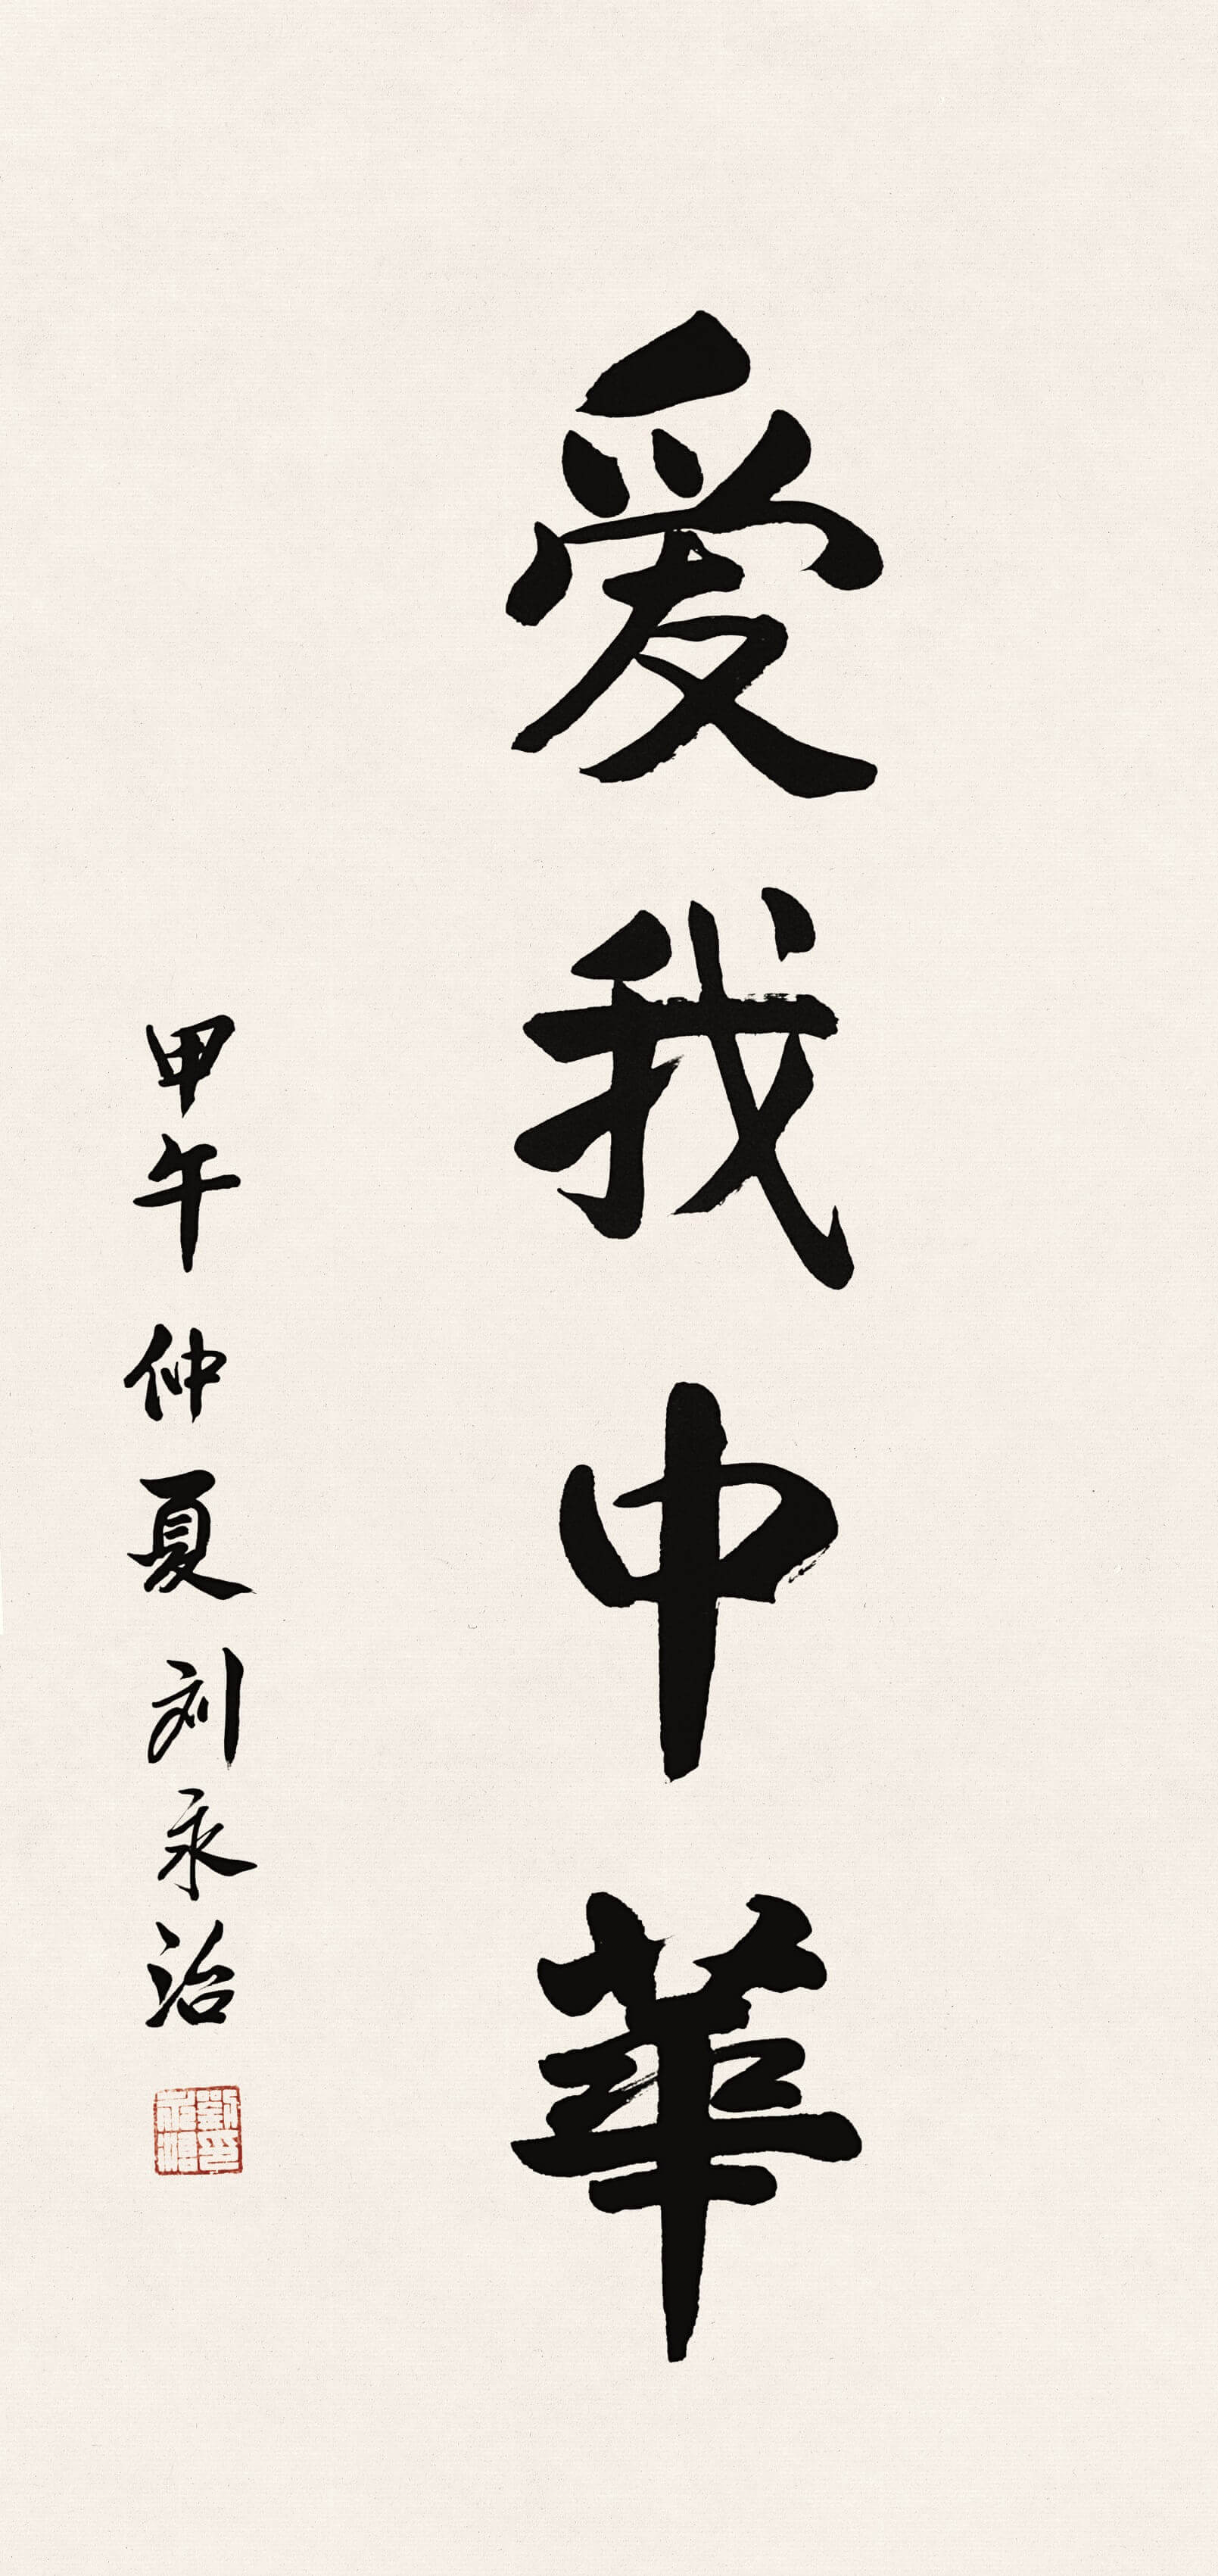 爱我中華
甲午仲夏刘永治